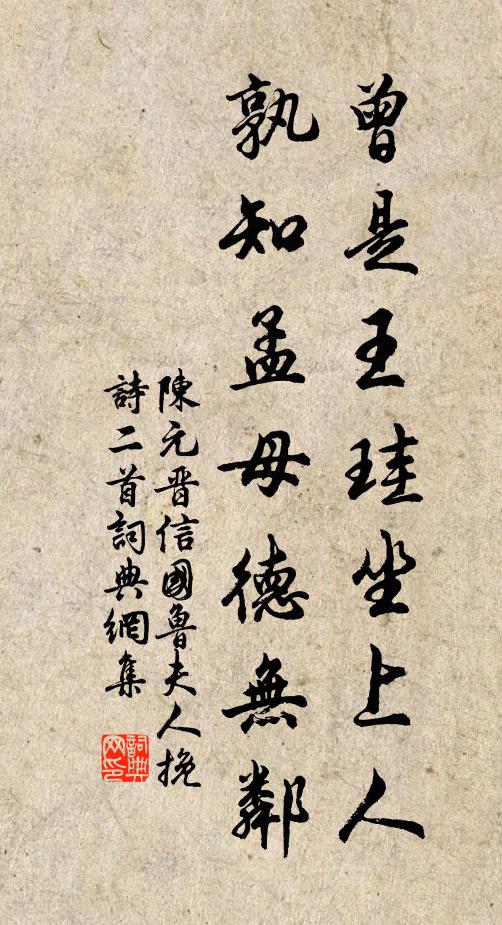 曾是王珪坐上人
孰知孟母德無鄰
陳元晋信國魯夫人挽
詩二首詞典網集
詞典
网印